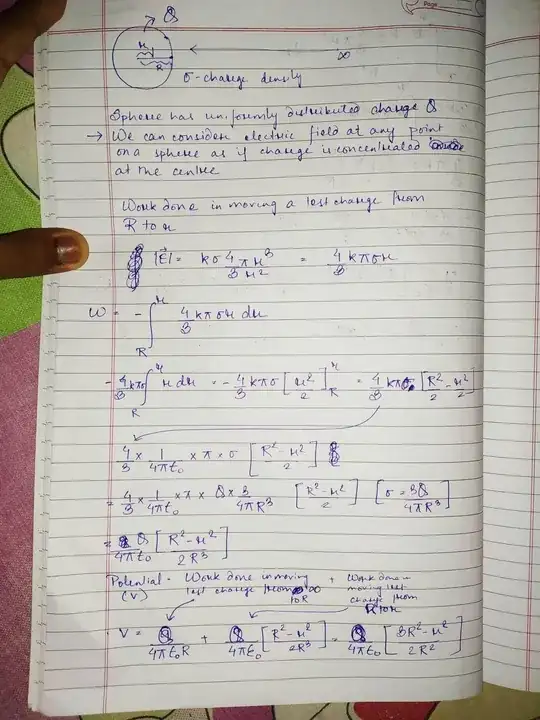 Page
Q
r
R
∞
σ-charge density
Sphere has uniformly distributed charge Q
→ We can consider electric field at any point
on a sphere as if charge is concentrated
at the centre
Work done in moving a test charge from
R to r
|E⃗| = kσ4πr³/3r² = 4/3 kπσr
W = -∫_R^r 4/3 kπσr dr
-4/3 kπσ ∫_R^r r dr = -4/3 kπσ [r²/2]_R^r = 4/3 kπσ [R²/2 - r²/2]
4/3 × 1/4πε₀ × π × σ [R² - r²/2]
= 4/3 × 1/4πε₀ × π × Q × 3/4πR³ [R² - r²/2] [σ = 3Q/4πR³]
= Q/4πε₀ [R² - r²/2R³]
Potential = Work done in moving test charge from ∞ to R + Work done in moving test charge from R to r
(V)
V = Q/4πε₀R + Q/4πε₀ [R² - r²/2R³] = Q/4πε₀ [3R² - r²/2R²]